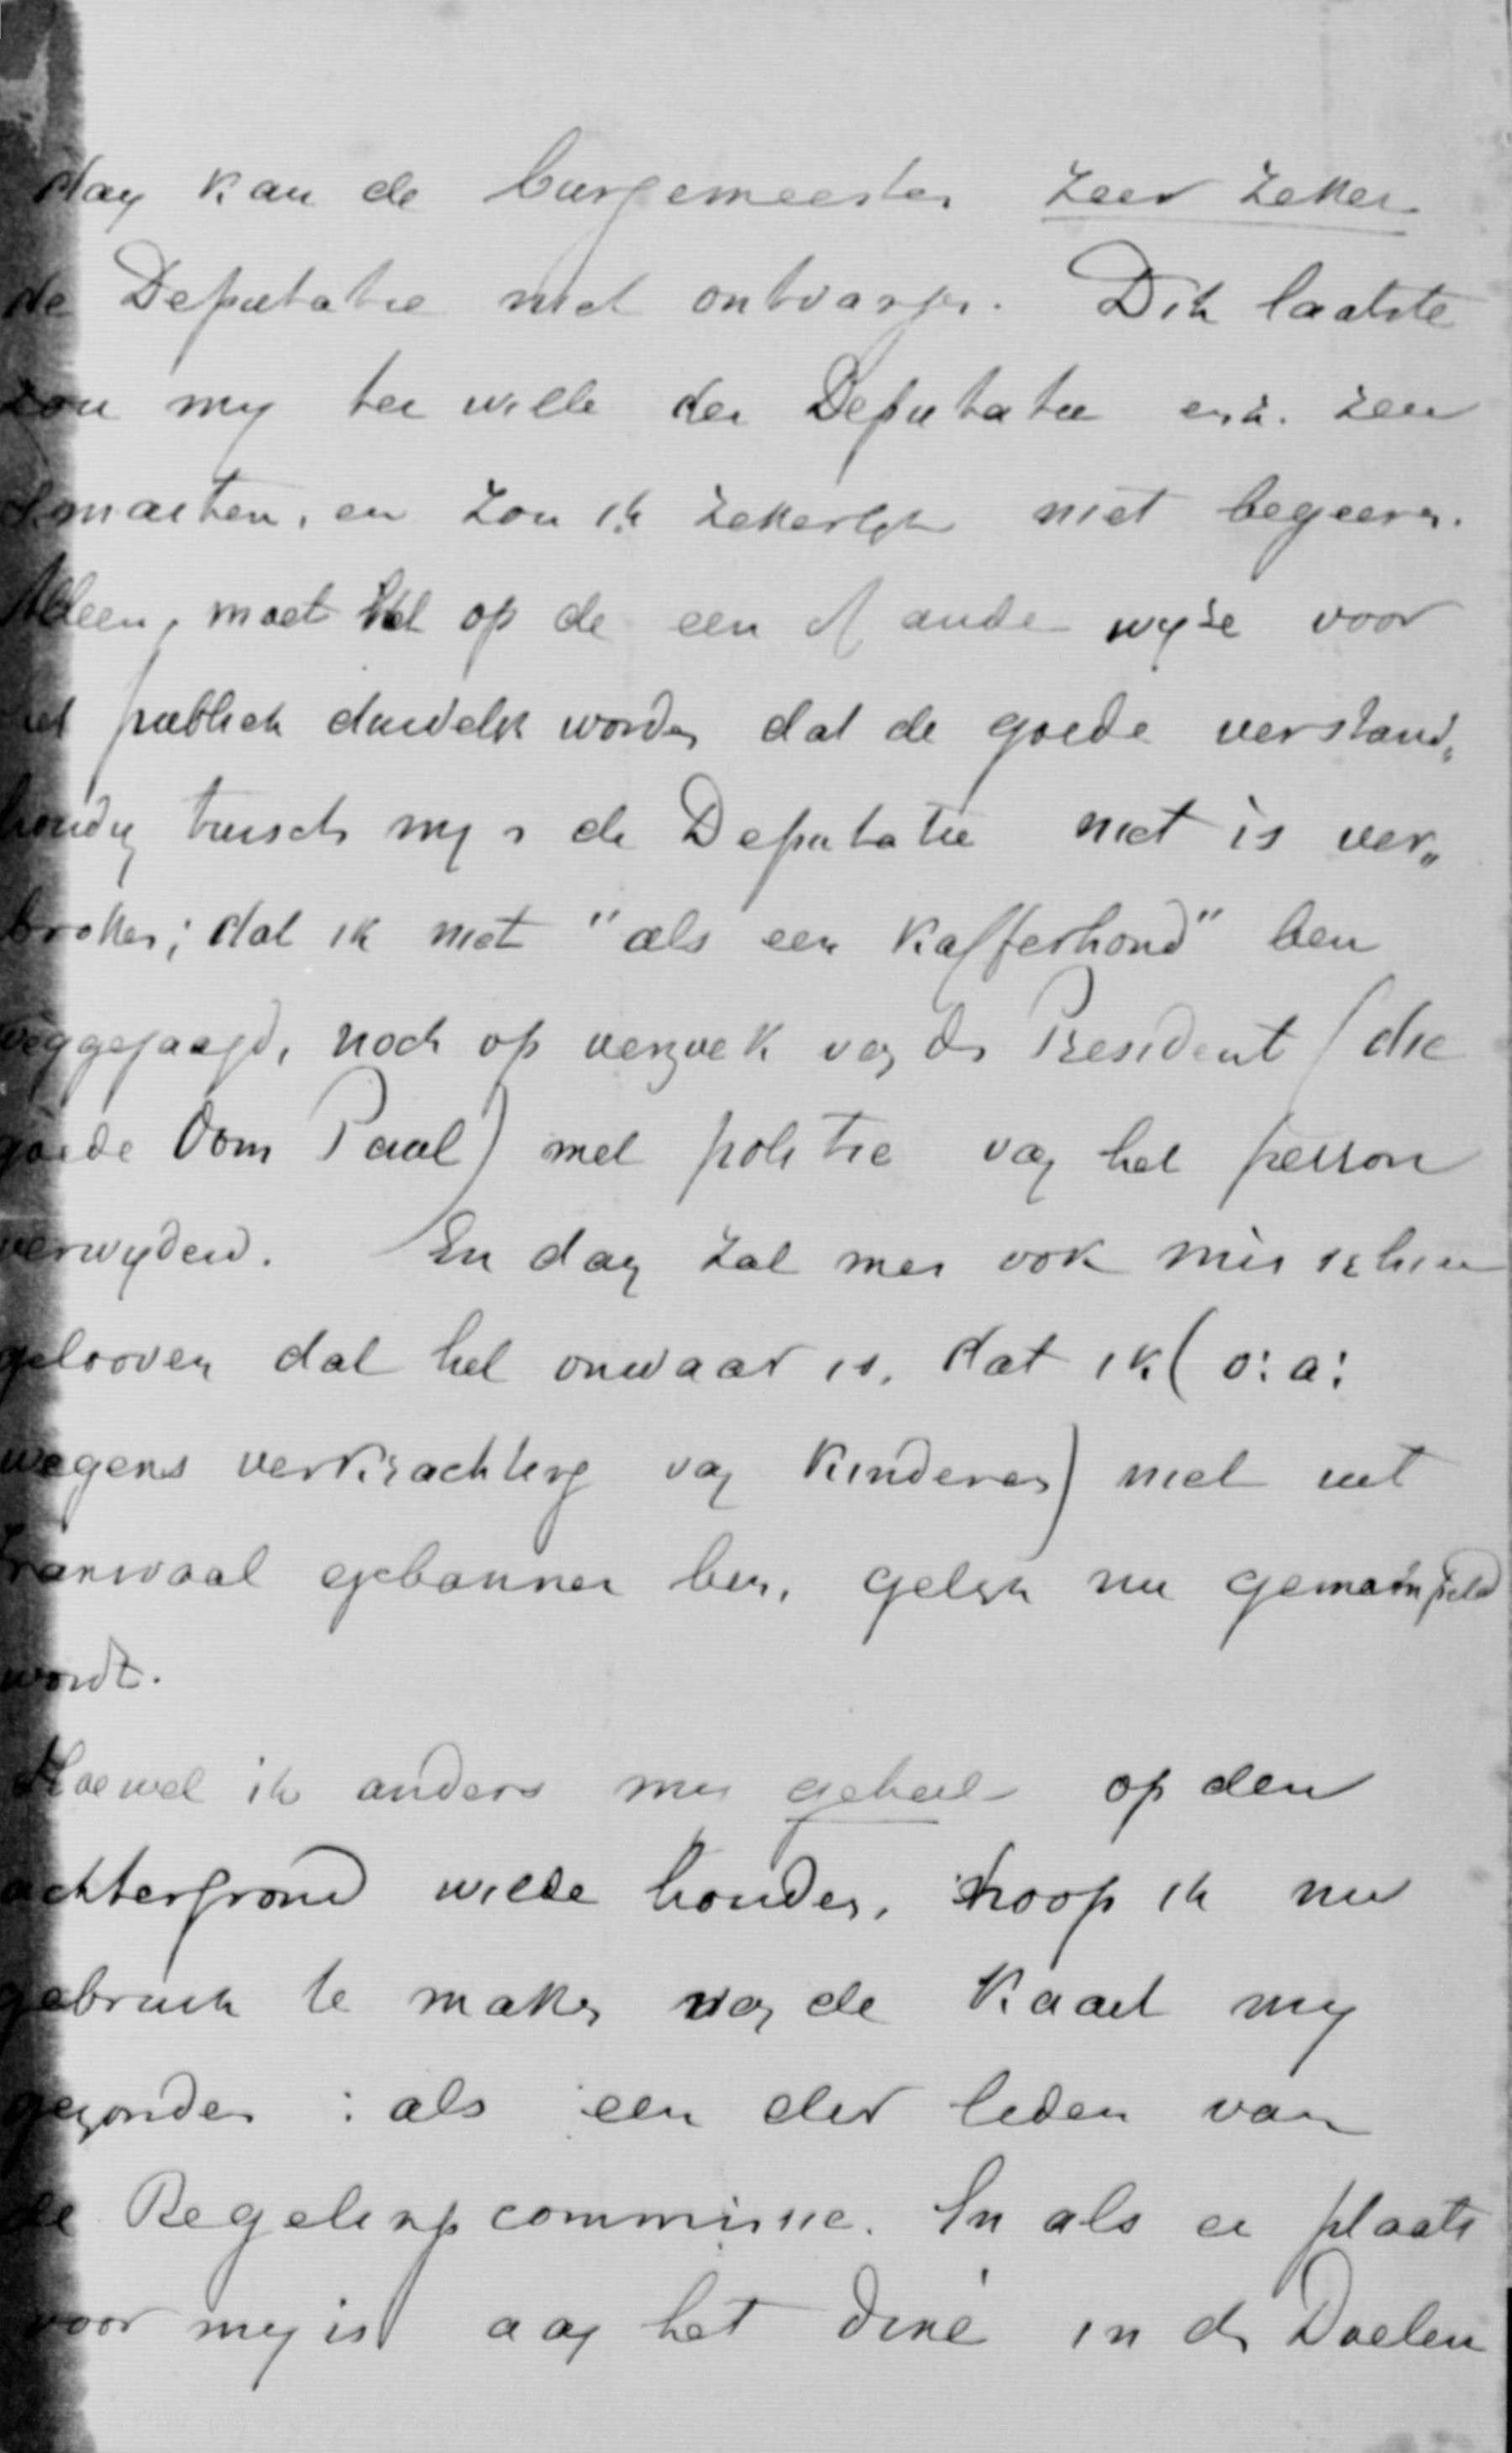 dan kan de burgemeester zeer zeker
de Deputatie niet ontvangen. Dit laatste
zou my ter wille der Deputatie enz. zeer
smarten, en zou ik zekerlijk niet begeeren.
Alleen, moet het op de een of ander wyze voor
het publiek duidelijk worden dat de goede verstand„
houding tusschen my en de Deputatie niet is ver„
broken; dat ik niet "als een Kafferhond" ben
weggejaagd, noch op verzoek van den President (die
goede Oom Paul) met politie van het perron
verwyderd. En dan zal men ook misschien
gelooven dat het onwaar is, dat ik (o: a:
wegens verkrachting van kinderen) niet uit
Transvaal gebannen ben, gelijk nu gemompeld
wordt.
Hoewel ik anders my geheel op den
achtergrond wilde houden, hoop ik nu
gebruik te maken van de Kaart my
gezonden : als een der leden van
de Regelingscommissie. En als er plaats
voor my is aan het diné in den Doelen